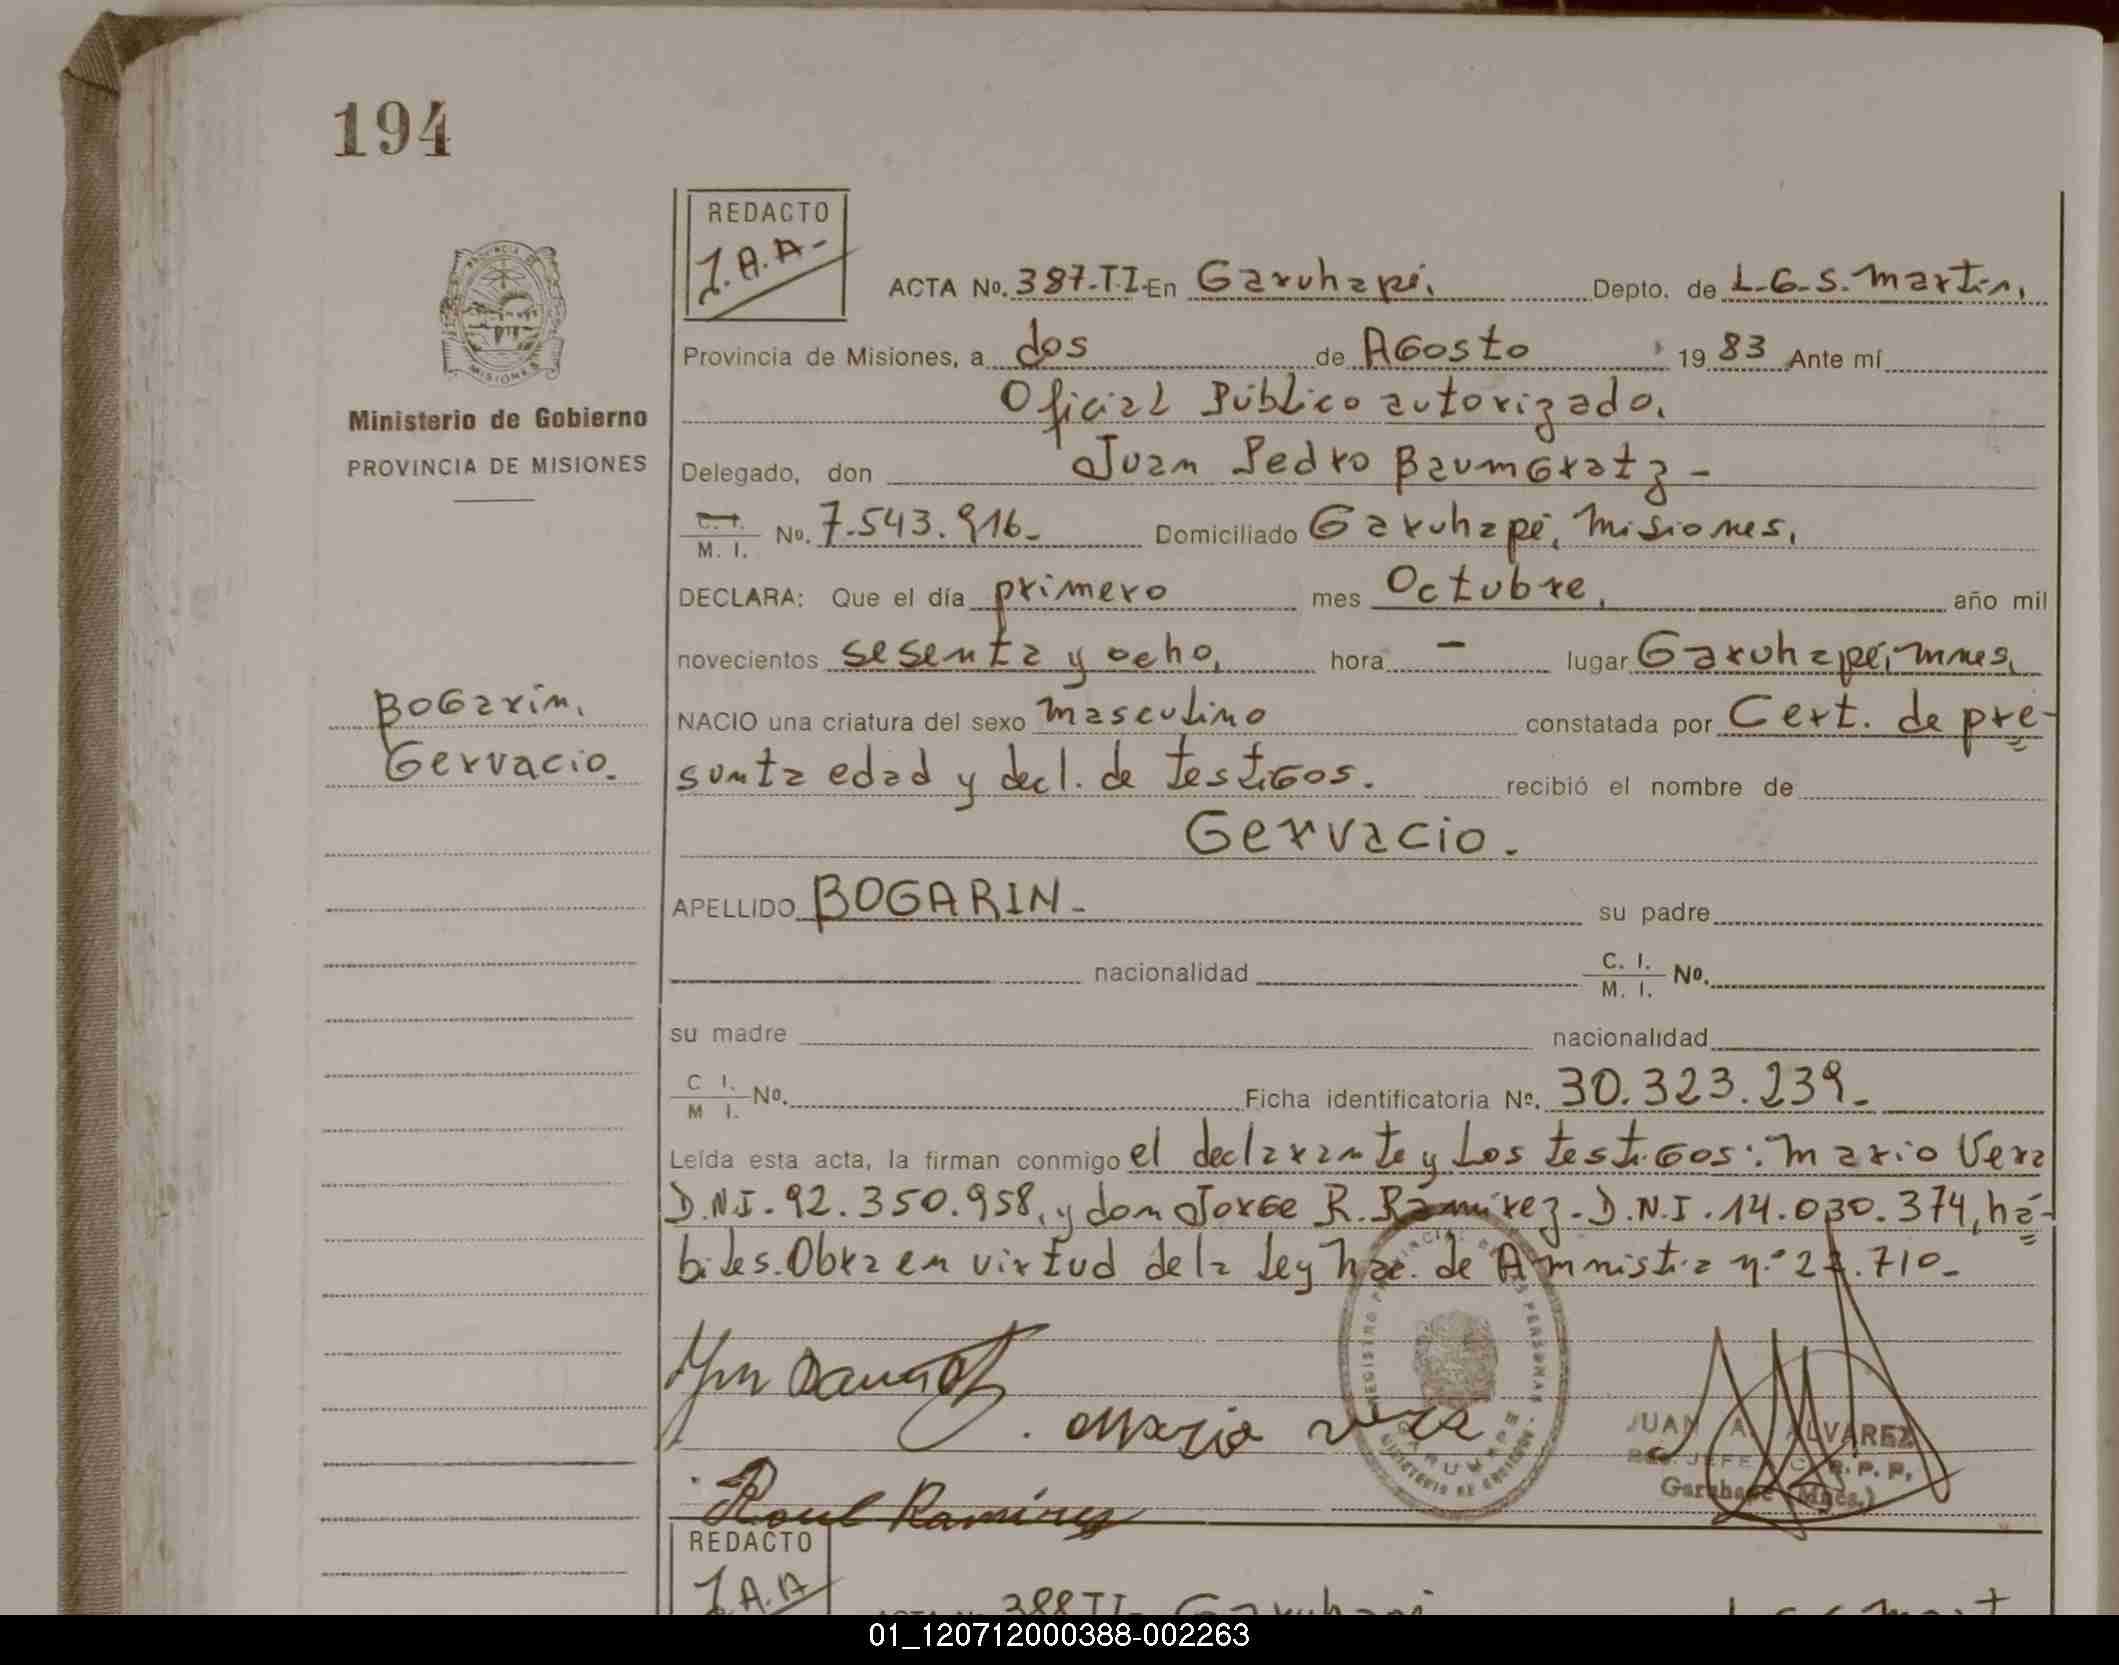 194
REDACTO
J.A.A-
ACTA No. 387-T.I. En Garuhapé, Depto. de L.G.S. Martin,
Provincia de Misiones, a dos de Agosto 19 83 Ante mí
Oficial Público autorizado,
Delegado, don Juan Pedro Baumgratz -
C. I.
M. I. No. 7.543.916- Domiciliado Garuhapé, Misiones,
DECLARA: Que el día primero mes Octubre, año mil
novecientos sesenta y ocho, hora - lugar Garuhapé, Mnes,
NACIO una criatura del sexo masculino constatada por Cert. de pre-
sunta edad y decl. de testigos. recibió el nombre de
Gervacio.
APELLIDO BOGARIN- su padre
nacionalidad C. I.
M. I. No.
su madre nacionalidad
C I.
M I. No. Ficha identificatoria No. 30.323.239-
Leída esta acta, la firman conmigo el declarante y los testigos: Mario Vera
D.N.I. 92.350.958, y don Jorge R. Ramírez- D.N.I. 14.030.374, há-
biles. Obra en virtud de la Ley Nac. de Amnistia n° 22.710-
Mario Vera
Raul Ramirez
JUAN A. ALVAREZ
JEFE R. P. P.
Garuhapé (Mnes.)
PROVINCIA DE
MISIONES
Ministerio de Gobierno
PROVINCIA DE MISIONES
Bogarin,
Gervacio.
REGISTRO PROVINCIAL DE LAS PERSONAS
GARUHAPE
MINISTERIO DE GOBIERNO
REDACTO
J.A.A
388 TI-
01_120712000388-002263